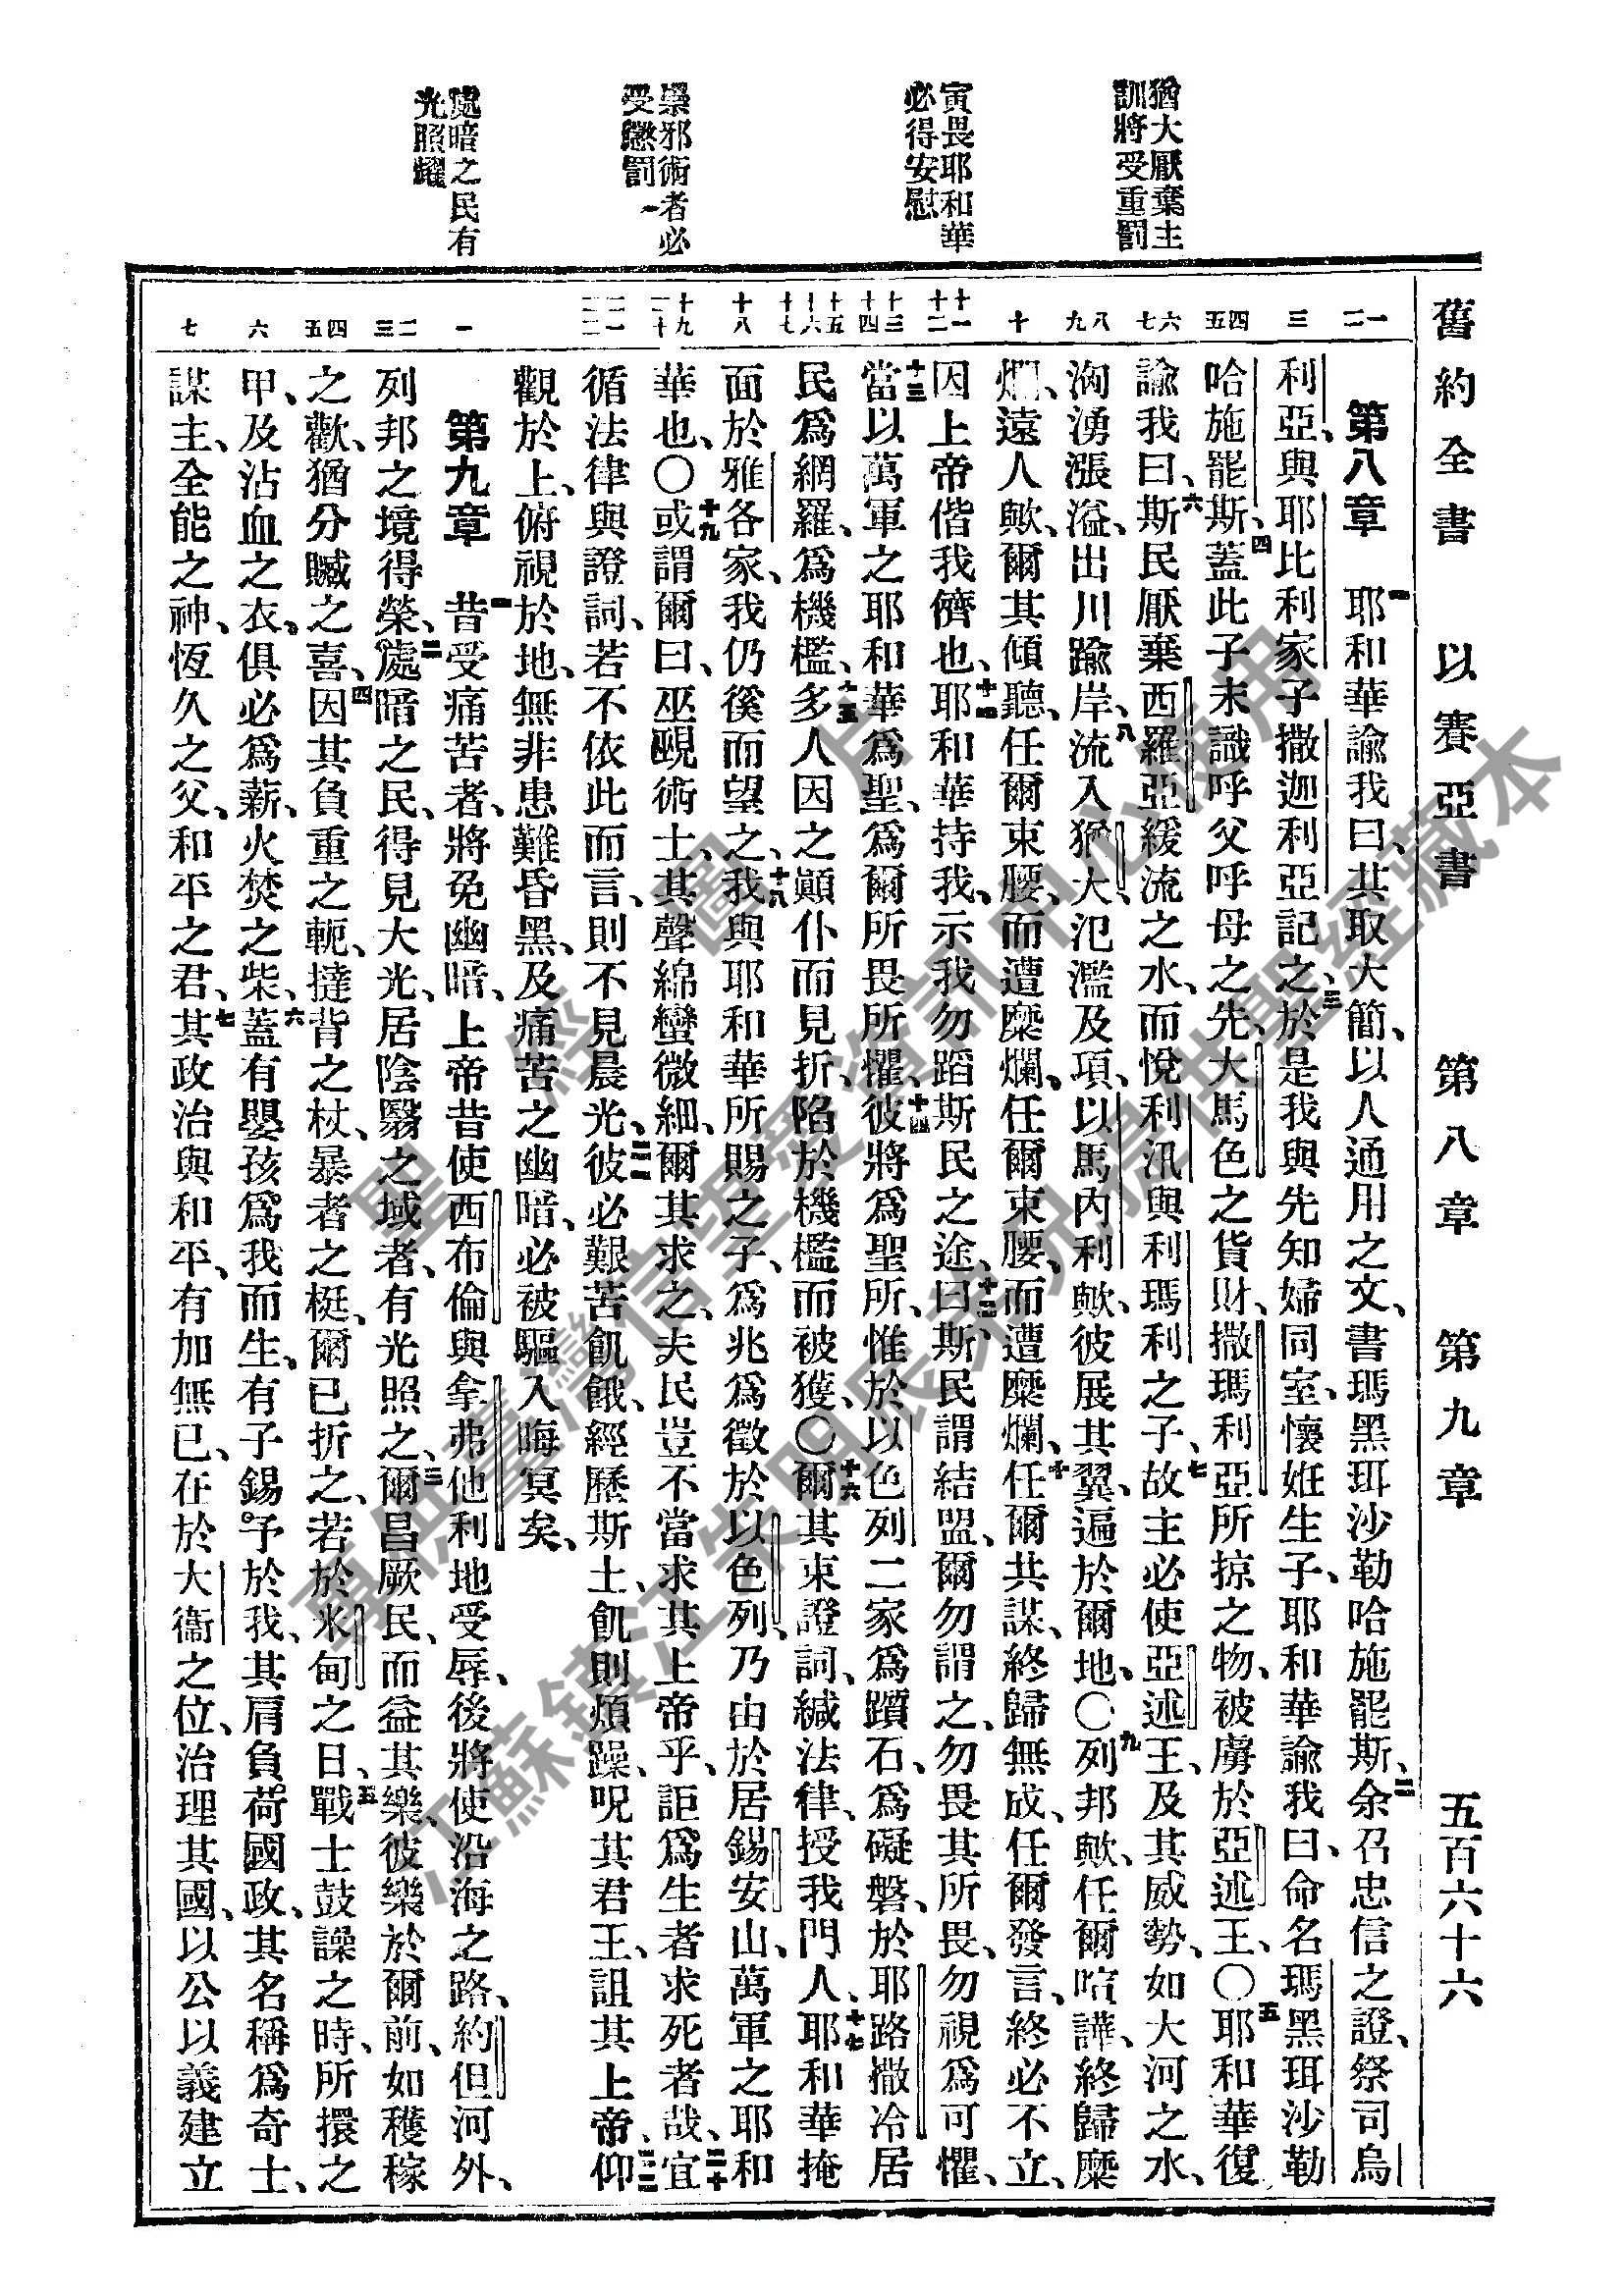 舊約全書 以賽亞書 第八章 第九章 五百六十六
猶大厭棄主
訓將受重罰
寅畏耶和華
必得安慰
崇邪術者必
受懲罰
處暗之民有
光照耀
一 二
三
四 五
六 七
八 九
十
十一 十二
十三 十四
十五 十六 十七
十八
十九 二十
二一 二二
一
二 三
四 五
六
七
第八章 一耶和華諭我曰、其取大簡、以人通用之文、書瑪黑珥沙勒哈施罷斯、二余召忠信之證、祭司烏
利亞、與耶比利家子撒迦利亞記之、三於是我與先知婦同室、懷姙生子、耶和華諭我曰、命名瑪黑珥沙勒
哈施罷斯、四蓋此子未識呼父呼母之先、大馬色之貨財、撒瑪利亞所掠之物、被虜於亞述王、〇五耶和華復
諭我曰、六斯民厭棄西羅亞緩流之水、而悅利汛與利瑪利之子、七故主必使亞述王、及其威勢、如大河之水、
洶湧漲溢、出川踰岸、八流入猶大、氾濫及項、以馬內利歟、彼展其翼、遍於爾地、〇九列邦歟、任爾喧譁、終歸糜
爛、遠人歟、爾其傾聽、任爾束腰、而遭糜爛、任爾束腰、而遭糜爛、十任爾共謀、終歸無成、任爾發言、終必不立、
因上帝偕我儕也、十一耶和華持我、示我勿蹈斯民之途、曰、十二斯民謂結盟、爾勿謂之、勿畏其所畏、勿視為可懼、
十三當以萬軍之耶和華為聖、為爾所畏所懼、十四彼將為聖所、惟於以色列二家為躓石、為礙磐、於耶路撒冷居
民為網羅、為機檻、十五多人因之顛仆而見折、陷於機檻而被獲、〇十六爾其束證詞、緘法律、授我門人、十七耶和華掩
面於雅各家、我仍徯而望之、十八我與耶和華所賜之子、為兆為徵於以色列、乃由於居錫安山、萬軍之耶和
華也、〇十九或謂爾曰、巫覡術士、其聲綿蠻微細、爾其求之、夫民豈不當求其上帝乎、詎為生者求死者哉、二十宜
循法律與證詞、若不依此而言、則不見晨光、二一彼必艱苦飢餓、經歷斯土、飢則煩躁、呪其君王、詛其上帝、二二仰
觀於上、俯視於地、無非患難昏黑、及痛苦之幽暗、必被驅入晦冥矣、
第九章 一昔受痛苦者、將免幽暗、上帝昔使西布倫與拿弗他利地受辱、後將使沿海之路、約但河外、
列邦之境得榮、二處暗之民、得見大光、居陰翳之域者、有光照之、三爾昌厥民、而益其樂、彼樂於爾前、如穫稼
之歡、猶分贓之喜、四因其負重之軛、撻背之杖、暴者之梃、爾已折之、若於米甸之日、五戰士鼓譟之時、所擐之
甲、及沾血之衣、俱必為薪、火焚之柴、六蓋有嬰孩為我而生、有子錫予於我、其肩負荷國政、其名稱為奇士、
謀主、全能之神、恆久之父、和平之君、七其政治與和平、有加無已、在於大衞之位、治理其國、以公以義建立
聖經圖片
專供臺灣信望愛資訊中心使用
江蘇鎮江朱明辰弟兄提供聖經藏本